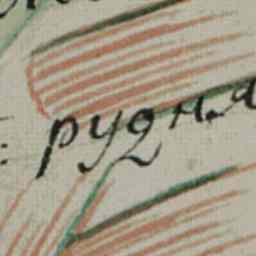 : рудня